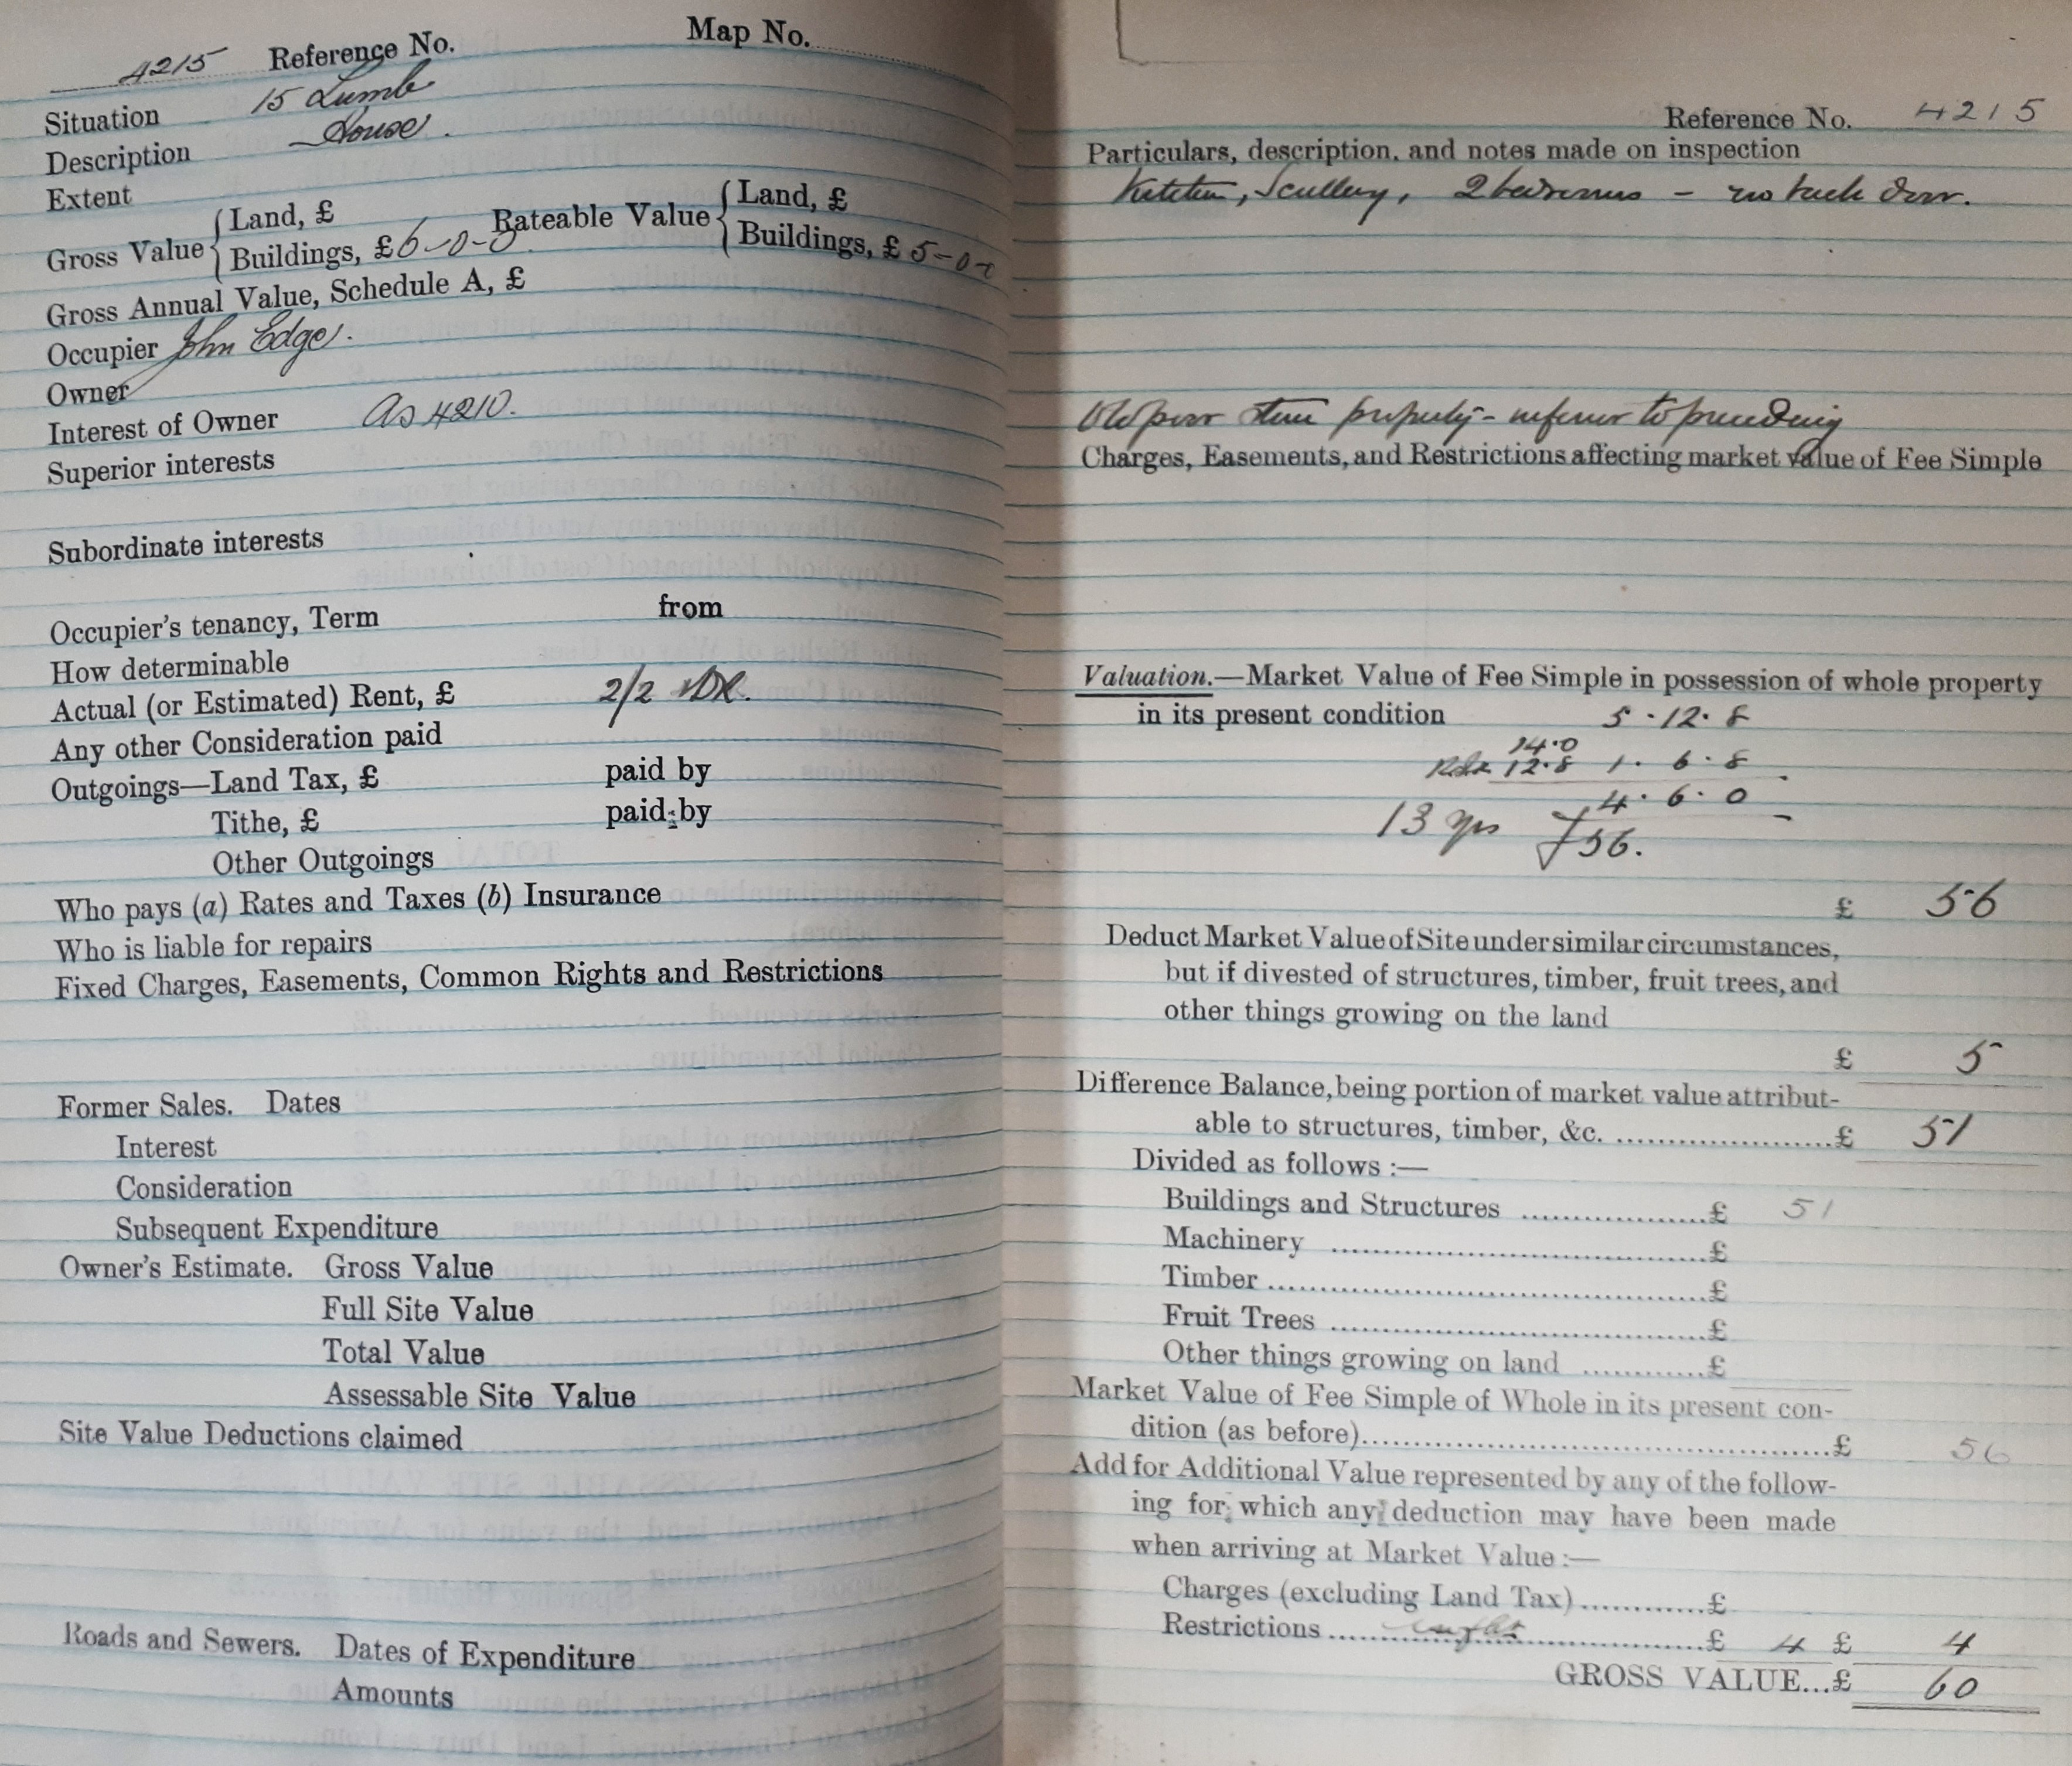 4215 Reference No. Map No.
Situation 15 Lumb
Description House.
Extent
Gross Value { Land, £ Rateable Value { Land, £
Buildings, £ 6-0-0 Buildings, £ 5-0-
Gross Annual Value, Schedule A, £
Occupier John Edge.
Owner
Interest of Owner As 4210.
Superior interests
Subordinate interests
Occupier's tenancy, Term from
How determinable
Actual (or Estimated) Rent, £ 2/2
Any other Consideration paid
Outgoings—Land Tax, £ paid by
Tithe, £ paid by
Other Outgoings
Who pays (a) Rates and Taxes (b) Insurance
Who is liable for repairs
Fixed Charges, Easements, Common Rights and Restrictions
Former Sales. Dates
Interest
Consideration
Subsequent Expenditure
Owner's Estimate. Gross Value
Full Site Value
Total Value
Assessable Site Value
Site Value Deductions claimed
Roads and Sewers. Dates of Expenditure
Amounts
Reference No. 4215
Particulars, description, and notes made on inspection
Kitchen, Scullery, 2 bedrooms - no back door.
Old poor stone property - inferior to preceding
Charges, Easements, and Restrictions affecting market value of Fee Simple
Valuation.—Market Value of Fee Simple in possession of whole property
in its present condition 5.12.8
14.0
12.8 1.6.8
4.6.0
13 yrs £56.
£ 56
Deduct Market Value of Site under similar circumstances,
but if divested of structures, timber, fruit trees, and
other things growing on the land
£ 5
Difference Balance, being portion of market value attribut-
able to structures, timber, &c. ....................£ 51
Divided as follows :—
Buildings and Structures ..................£ 51
Machinery ....................................£
Timber ..........................................£
Fruit Trees ....................................£
Other things growing on land ............£
Market Value of Fee Simple of Whole in its present con-
dition (as before)............................................£ 56
Add for Additional Value represented by any of the follow-
ing for which any deduction may have been made
when arriving at Market Value :—
Charges (excluding Land Tax)............£
Restrictions ....................................£ 4 £ 4
GROSS VALUE...£ 60